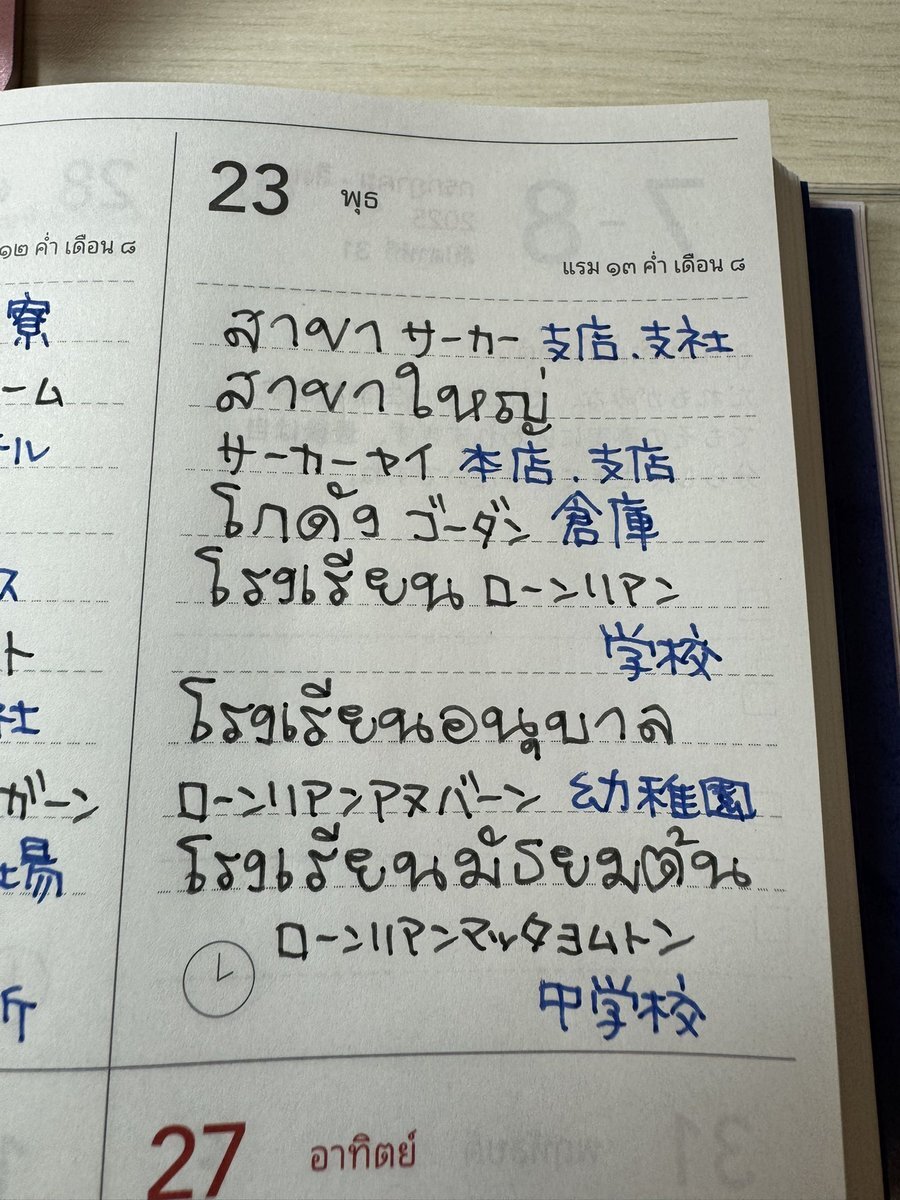 ๑๒ ค่ำ เดือน ๘
寮
ーム
ール
ス
ト
社
ガーン
場
所
23 พุธ
แรม ๑๓ ค่ำ เดือน ๘
สาขา サーカー 支店.支社
สาขาใหญ่
サーカーヤイ 本店.支店
โกดัง ゴーダン 倉庫
โรงเรียน ローンリアン
学校
โรงเรียนอนุบาล
ローンリアンアヌバーン 幼稚園
โรงเรียนมัธยมต้น
ローンリアンマッタヨムトン
中学校
27 อาทิตย์